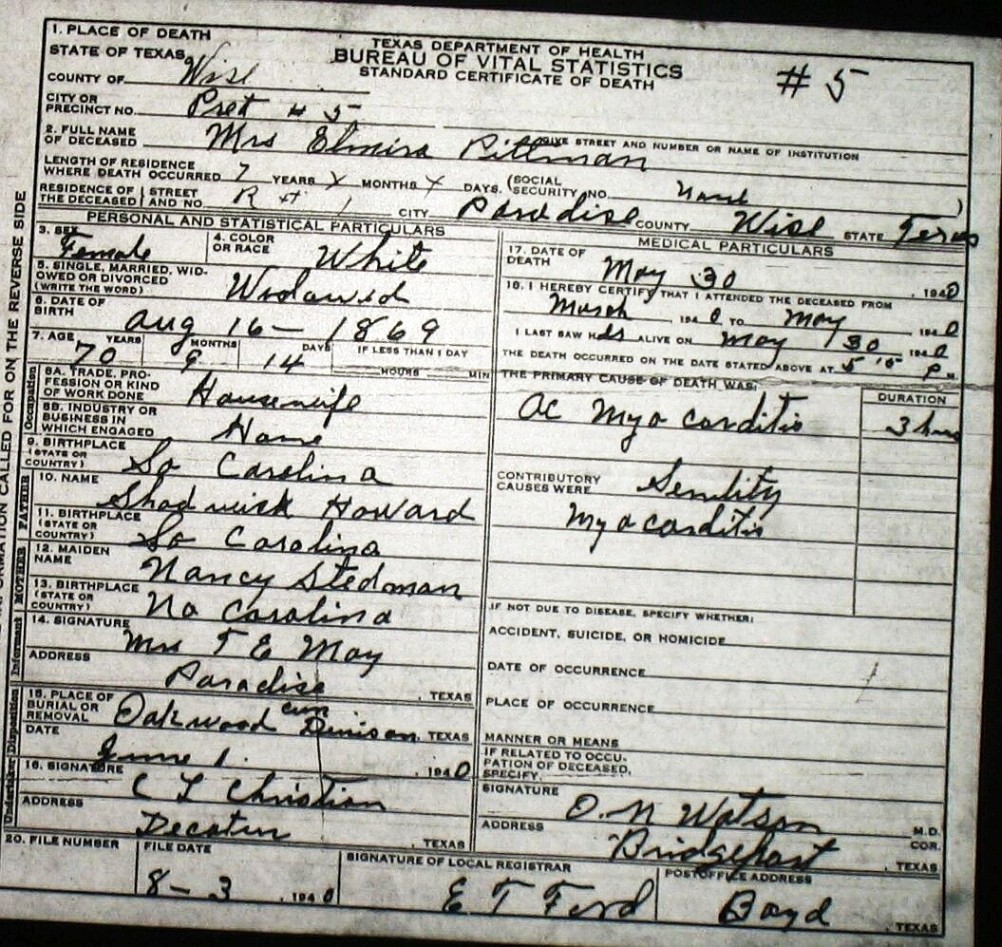 TEXAS DEPARTMENT OF HEALTH
BUREAU OF VITAL STATISTICS
STANDARD CERTIFICATE OF DEATH
# 5
1. PLACE OF DEATH
STATE OF TEXAS
COUNTY OF Wise
CITY OR PRECINCT NO. Prct # 5
GIVE STREET AND NUMBER OR NAME OF INSTITUTION
2. FULL NAME OF DECEASED Mrs Elmira Pittman
LENGTH OF RESIDENCE WHERE DEATH OCCURRED 7 YEARS X MONTHS X DAYS. (SOCIAL SECURITY NO. none )
RESIDENCE OF THE DECEASED STREET AND NO. R # 1 CITY Paradise COUNTY Wise STATE Texas
PERSONAL AND STATISTICAL PARTICULARS
3. SEX Female
4. COLOR OR RACE White
5. SINGLE, MARRIED, WIDOWED OR DIVORCED (WRITE THE WORD) Widowed
6. DATE OF BIRTH Aug 16 - 1869
7. AGE YEARS MONTHS DAYS IF LESS THAN 1 DAY
70 9 14 HOURS MIN
Occupation
8A. TRADE, PROFESSION OR KIND OF WORK DONE Housewife
8B. INDUSTRY OR BUSINESS IN WHICH ENGAGED Home
9. BIRTHPLACE (STATE OR COUNTRY) So Carolina
FATHER
10. NAME Shadwick Howard
11. BIRTHPLACE (STATE OR COUNTRY) So Carolina
MOTHER
12. MAIDEN NAME Nancy Stedman
13. BIRTHPLACE (STATE OR COUNTRY) No Carolina
Informant
14. SIGNATURE Mrs T E May
ADDRESS Paradise , TEXAS
Disposition
15. PLACE OF BURIAL OR REMOVAL Oakwood cem Denison TEXAS
DATE June 1. , 1940
Undertaker
16. SIGNATURE C L Christian
ADDRESS Decatur , TEXAS
MEDICAL PARTICULARS
17. DATE OF DEATH May 30 , 1940
18. I HEREBY CERTIFY THAT I ATTENDED THE DECEASED FROM
March 1940 TO May 1940
I LAST SAW H ALIVE ON May 30 1940
THE DEATH OCCURRED ON THE DATE STATED ABOVE AT 5 15 P M.
THE PRIMARY CAUSE OF DEATH WAS:
DURATION
Ac Myocarditis 3 hrs
CONTRIBUTORY CAUSES WERE Senility
Myocarditis
IF NOT DUE TO DISEASE, SPECIFY WHETHER:
ACCIDENT, SUICIDE, OR HOMICIDE
DATE OF OCCURRENCE
PLACE OF OCCURRENCE
MANNER OR MEANS
IF RELATED TO OCCUPATION OF DECEASED, SPECIFY.
SIGNATURE O. N Watson M.D.
COR.
ADDRESS Bridgeport , TEXAS
20. FILE NUMBER
FILE DATE 8-3 , 1940
SIGNATURE OF LOCAL REGISTRAR E T Ford
POSTOFFICE ADDRESS Boyd , TEXAS
INFORMATION CALLED FOR ON THE REVERSE SIDE